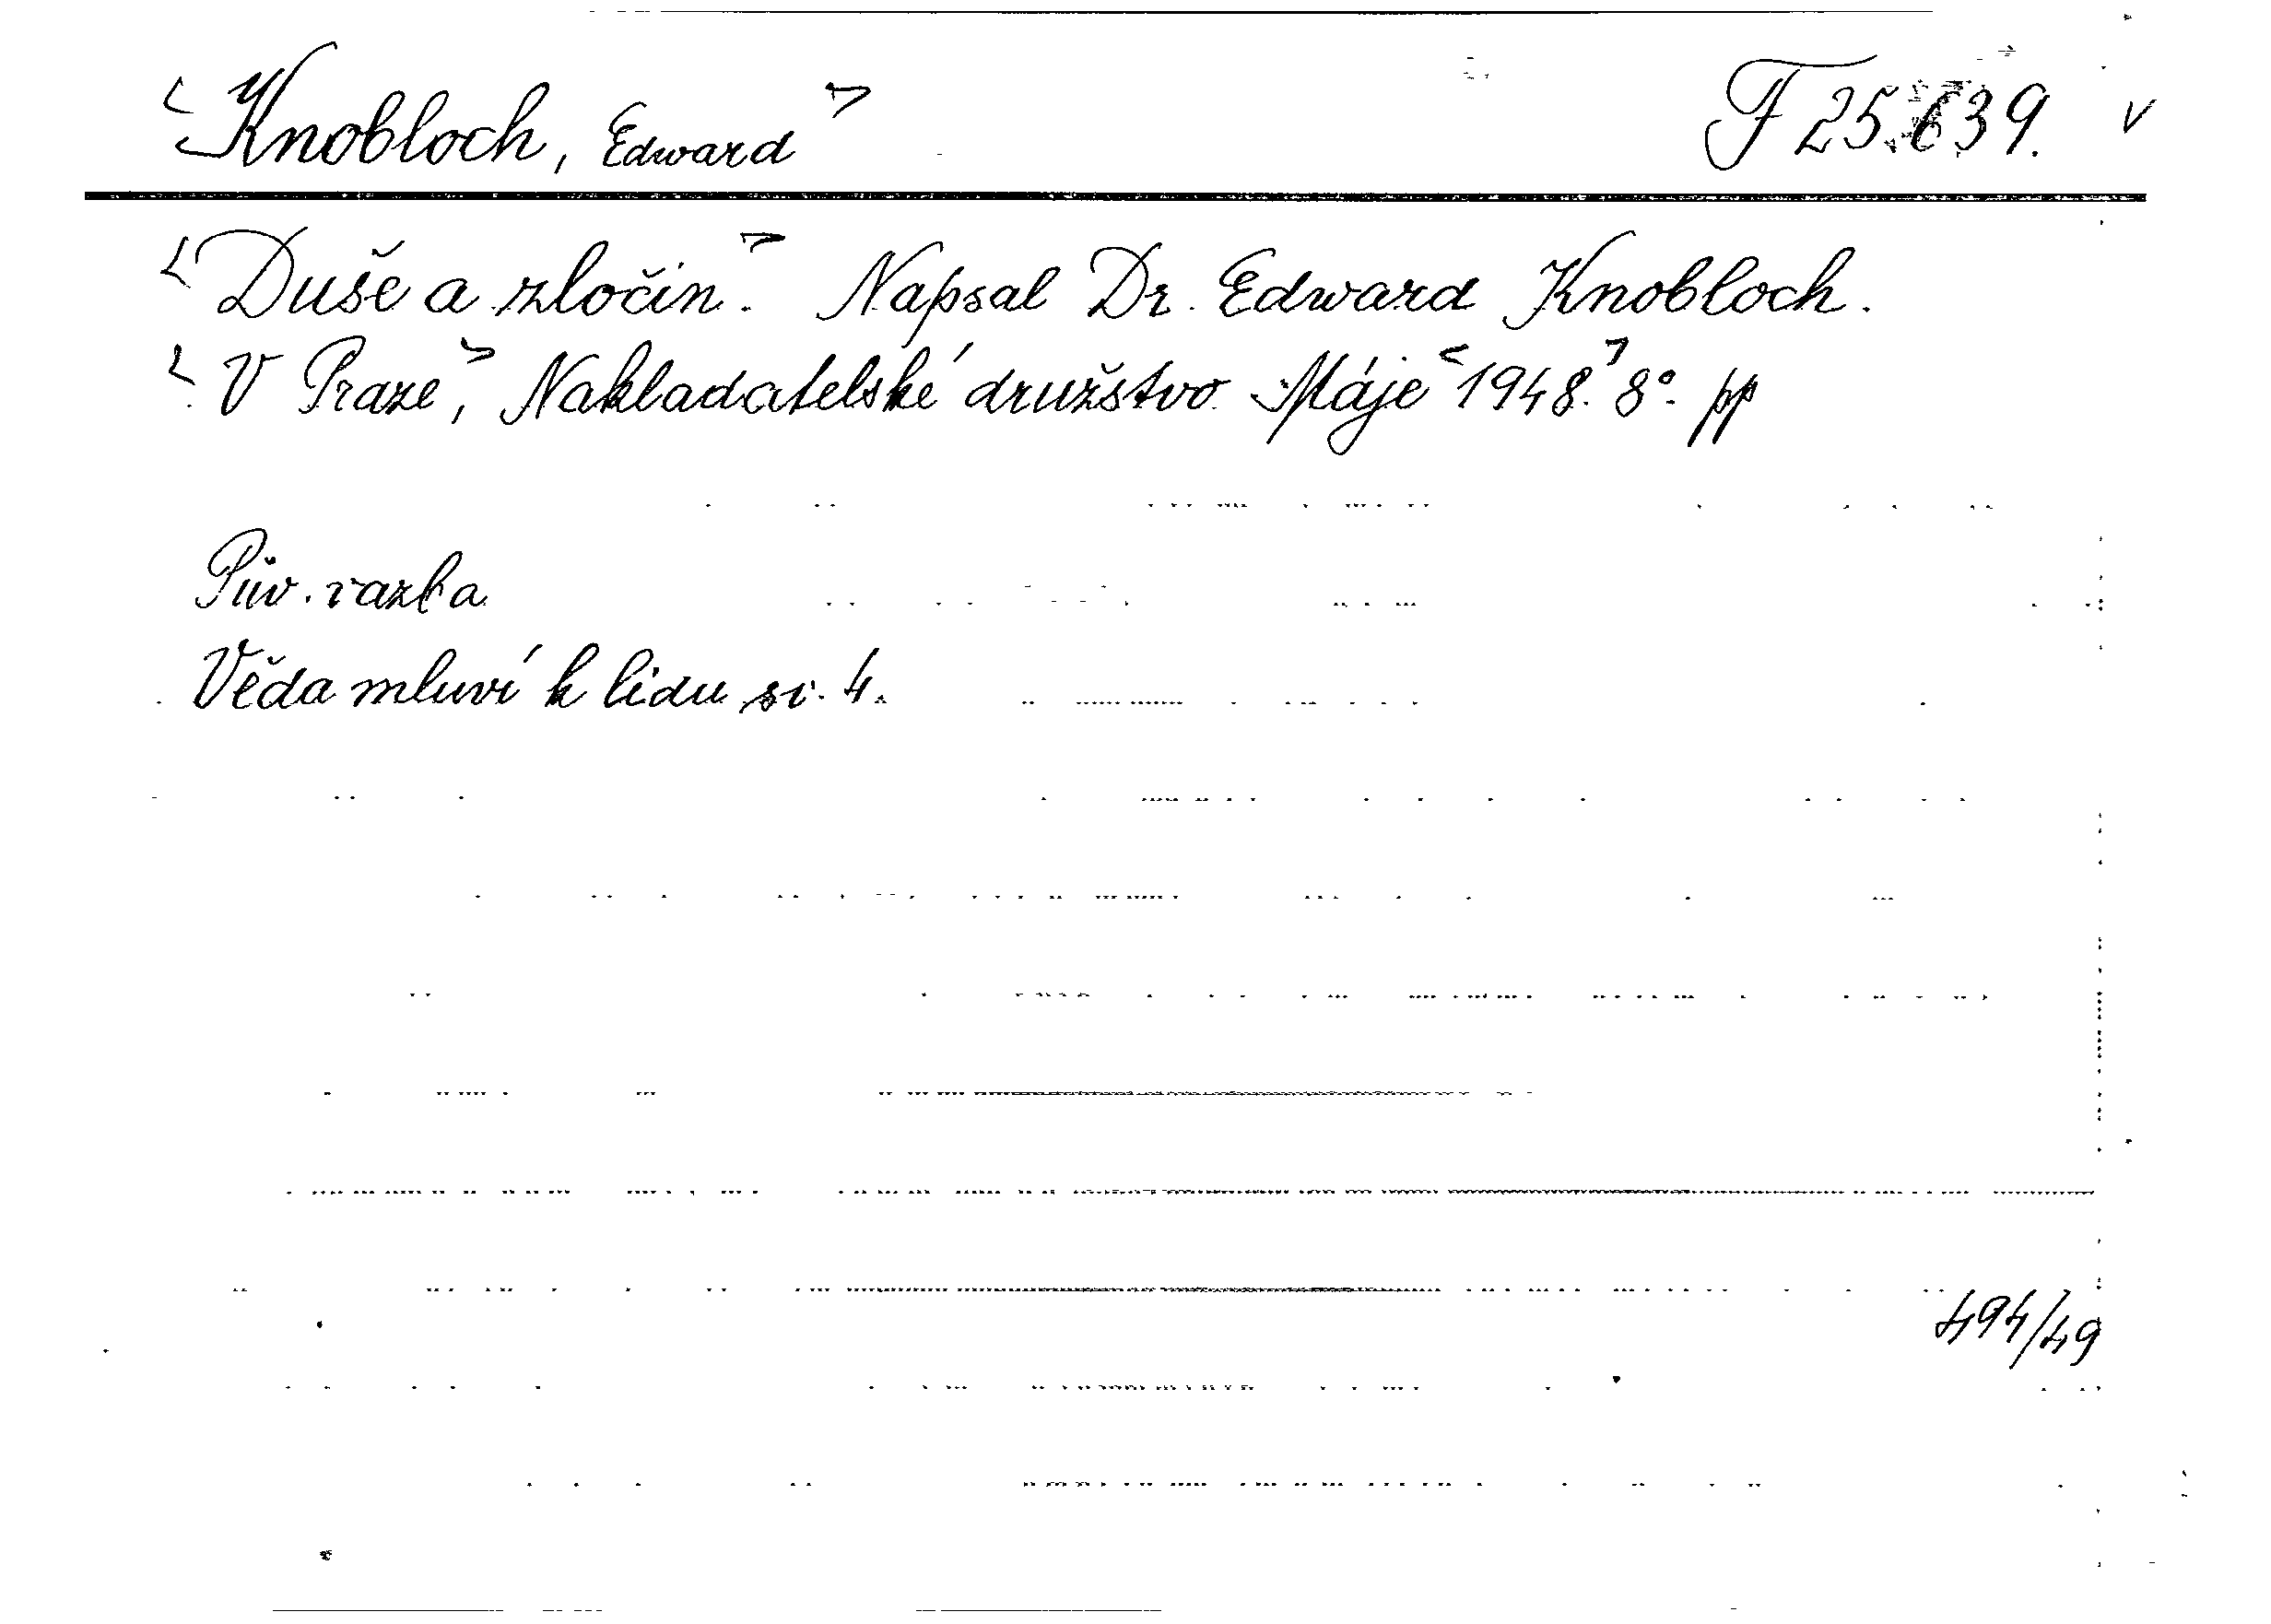 <Knobloch, Edward> F 25.639. v
<Duše a zločin.> Napsal Dr. Edward Knobloch.
<V Praze>, Nakladatelské družstvo Máje <1948.> 8°. pp
Pův. vazba
Věda mluví k lidu sv. 4.
494/49